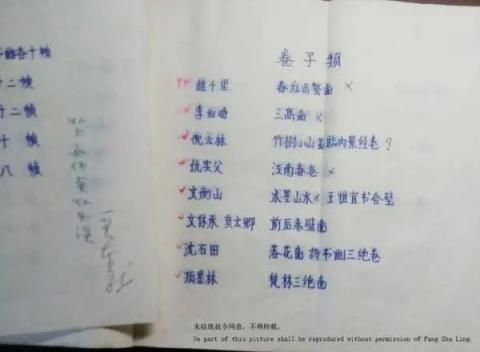 各十幀
十二幀
十二幀
十幀
八幀
卷子類
趙千里 春庭百贅畵 ×
李伯時 三高畵 ×
倪云林 竹樹小山 臨內景經卷 ?
仇实父 江南春卷 ×
文衡山 水墨山水 × 王雅宜书合壁
文休承 莫太卿 前后赤壁畵
沈石田 落花畵 詩书画三绝卷
項墨林 梵林三绝畵
未经庞叔令同意，不得转载。
No part of this picture shall be reproduced without permission of Pang Shu Ling.